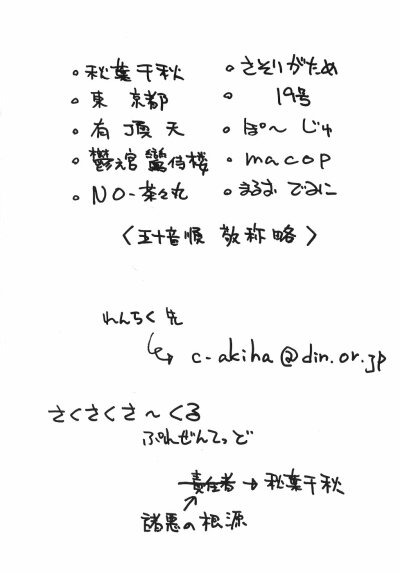 。秋葉千秋
。東 京都
。有頂天
。鬱え官 蠻侍楼
。NO-茶々丸
。さそりがため
。19号
。ぽ〜じゅ
。macop
。まるお でるに
〈五十音順 敬称略〉
れんちく先
c-akiha@din.or.jp
さくさくさ〜くる
ぷれぜんてっど
責任者→秋葉千秋
諸悪の根源